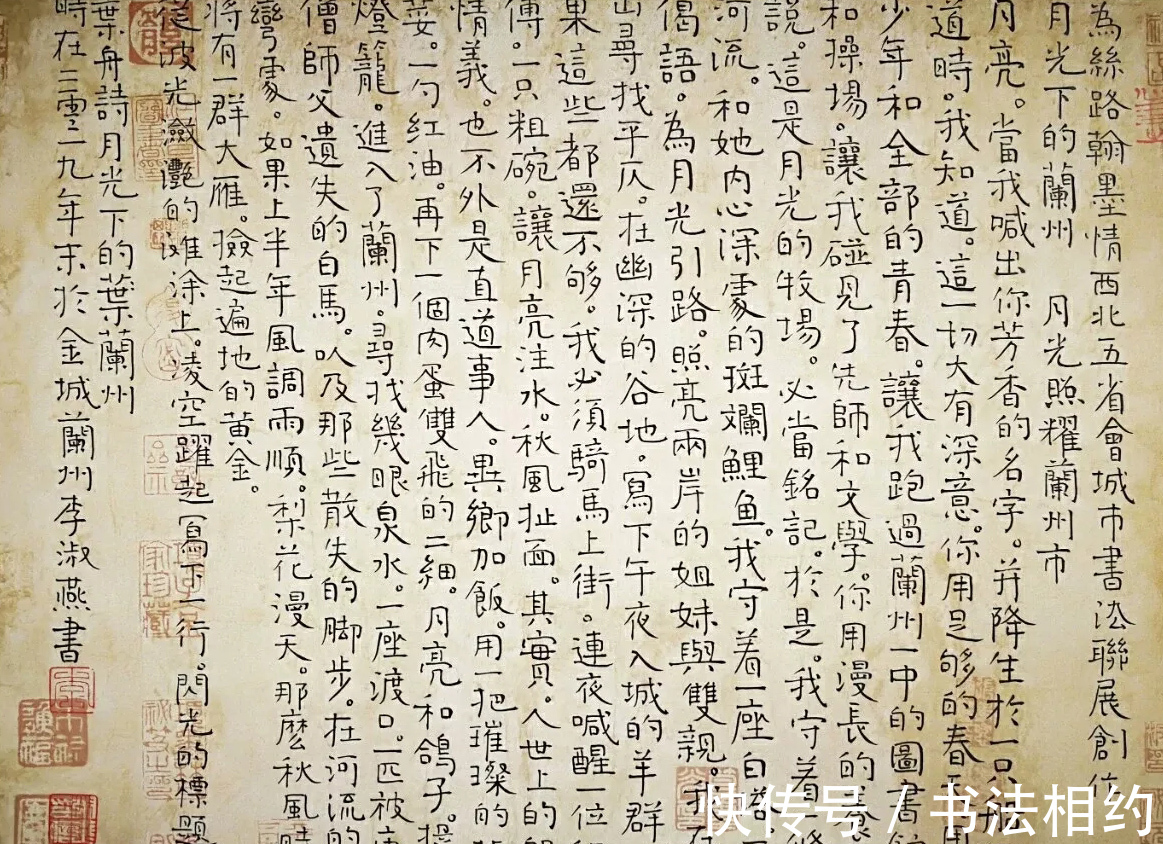 為絲路翰墨情西北五省會城市書法聯展創作
月光下的蘭州 月光照耀蘭州市
月亮。當我喊出你芳香的名字。并降生於一只
道時。我知道。這一切大有深意。你用足够的春天用
少年和全部的青春。讓我跑過蘭州一中的圖書館
和操場。讓我碰見了先師和文學。你用漫長的
說。這是月光的牧場。必當銘記。於是。我守着
河流。和她内心深處的斑斕鯉魚。我守着一座白塔。
偈語。為月光引路。照亮兩岸的姐妹與雙親。我在
山尋找平仄。在幽深的谷地。寫下午夜入城的羊群
果這些都還不够。我必須騎馬上街。連夜喊醒一位
傳。一只粗碗。讓月亮注水。秋風扯面。其實。人世上的
情義。也不外是直道事人。異鄉加飯。用一把璀璨的
荽。一勺紅油。再下一個肉蛋雙飛的二細。月亮和鴿子。提
燈籠。進入了蘭州。尋找幾眼泉水。一座渡口。一匹被
僧師父遺失的白馬。以及那些散失的脚步。在河流的
彎處。如果上半年風調雨順。梨花漫天。那麼秋風
將有一群大雁。撿起遍地的黃金。
從波光瀲灧的灘涂上。凌空躍起 寫下一行。閃光的標題
葉舟詩月光下的葉蘭州
時在二零一九年末於金城蘭州李淑燕書
快传号 / 书法相约